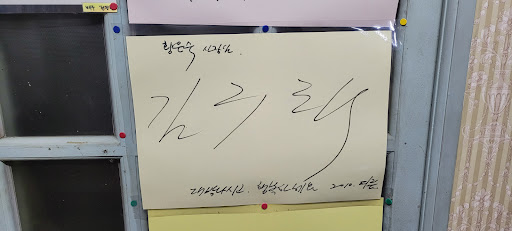 황은숙 사장님.
김 구 라
대박나시고. 행복하세요 2010